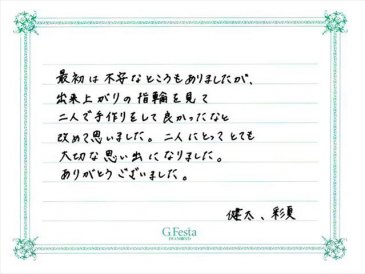 最初は不安なところもありましたが、
出来上がりの指輪を見て
二人で手作りをして良かったなと
改めて思いました。二人にとってとても
大切な思い出になりました。
ありがとうございました。
健太、彩夏
G.Festa
DIAMOND